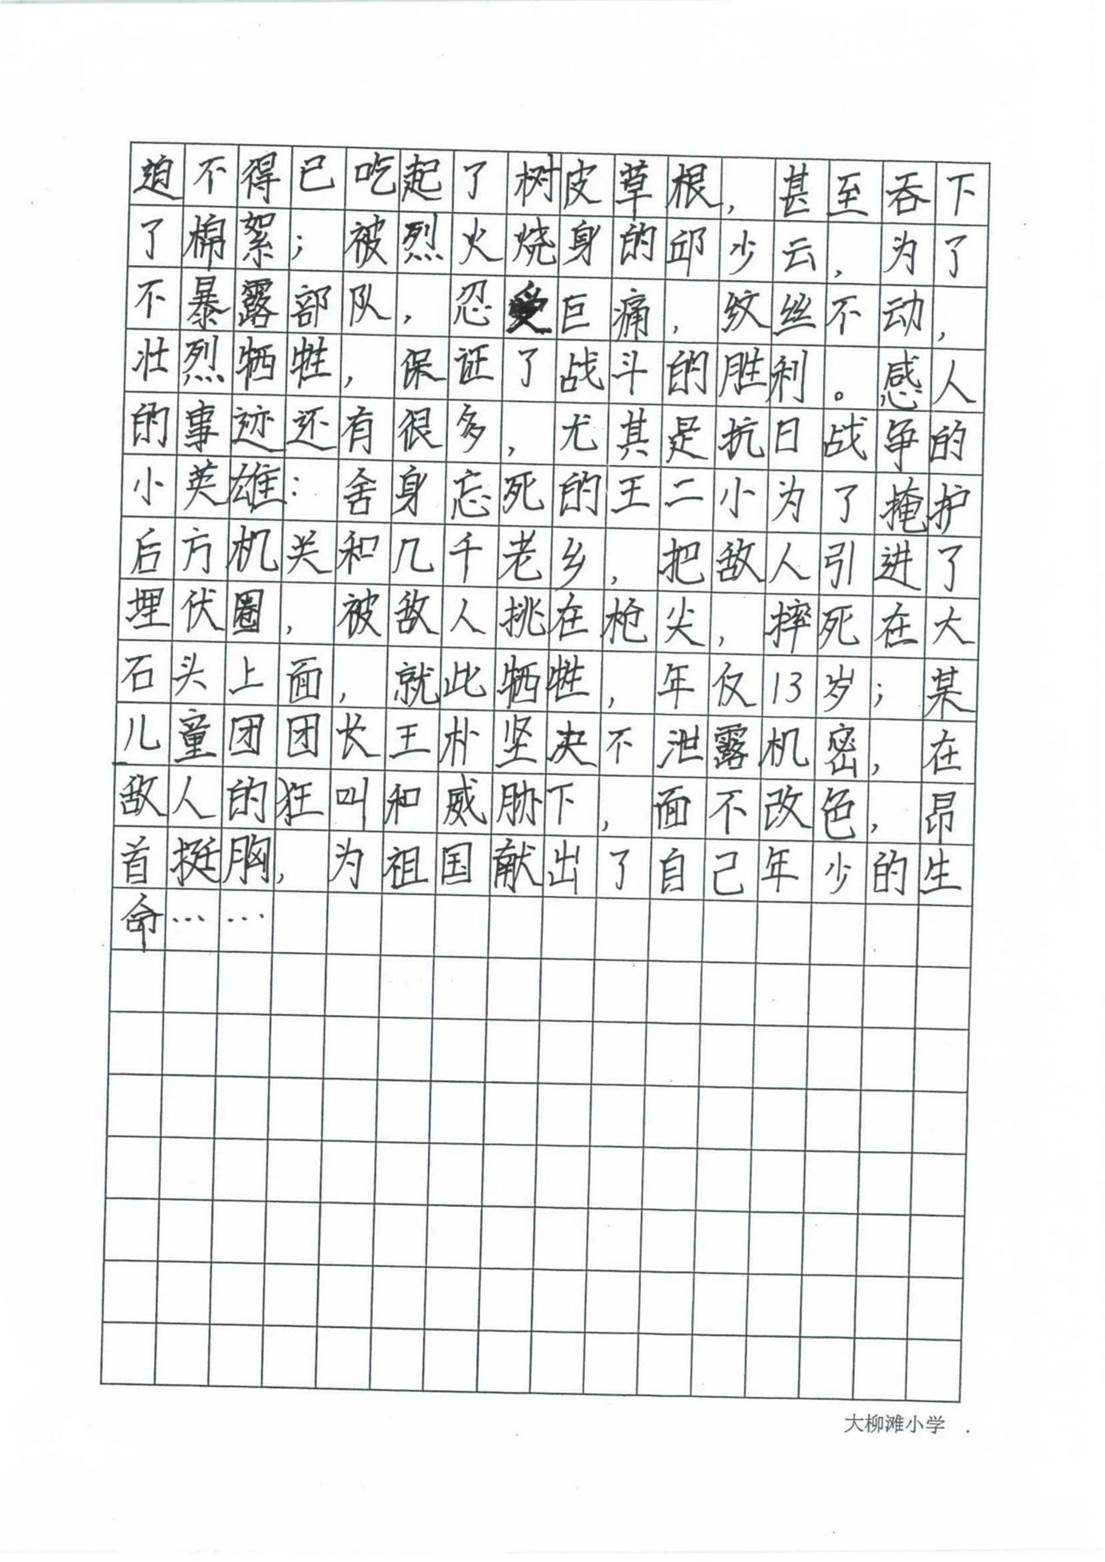 迫不得已吃起了树皮草根，甚至吞下
了棉絮；被烈火烧身的邱少云，为了
不暴露部队，忍受巨痛，纹丝不动，
壮烈牺牲，保证了战斗的胜利。感人
的事迹还有很多，尤其是抗日战争的
小英雄：舍身忘死的王二小为了掩护
后方机关和几千老乡，把敌人引进了
埋伏圈，被敌人挑在枪尖，摔死在大
石头上面，就此牺牲，年仅13岁；某
儿童团团长王朴坚决不泄露机密，在
敌人的狂叫和威胁下，面不改色，昂
首挺胸，为祖国献出了自己年少的生
命……
大柳滩小学